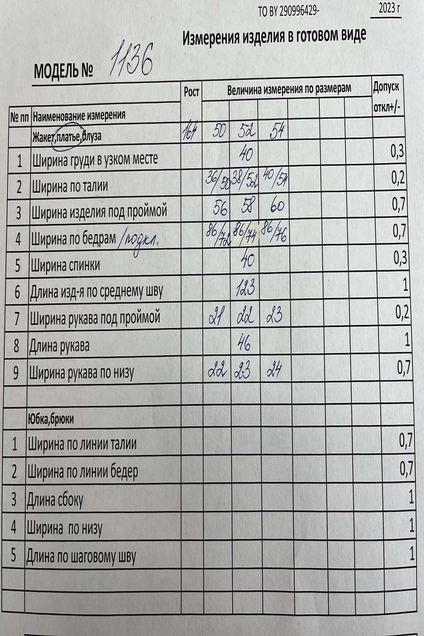 ТО BY 290996429-
2023 г
Измерения изделия в готовом виде
МОДЕЛЬ № 1136
№ пп Наименование измерения Рост Величина измерения по размерам Допуск откл+/-
Жакет,платье,блуза 164 50 52 54
1 Ширина груди в узком месте 40 0,3
2 Ширина по талии 36/50 38/52 40/54 0,2
3 Ширина изделия под проймой 56 58 60 0,7
4 Ширина по бедрам /подкл. 86/72 86/74 86/76 0,7
5 Ширина спинки 40 0,3
6 Длина изд-я по среднему шву 123 1
7 Ширина рукава под проймой 21 22 23 0,2
8 Длина рукава 46 1
9 Ширина рукава по низу 22 23 24 0,7
Юбка,брюки
1 Ширина по линии талии 0,7
2 Ширина по линии бедер 0,7
3 Длина сбоку 1
4 Ширина по низу 1
5 Длина по шаговому шву 1